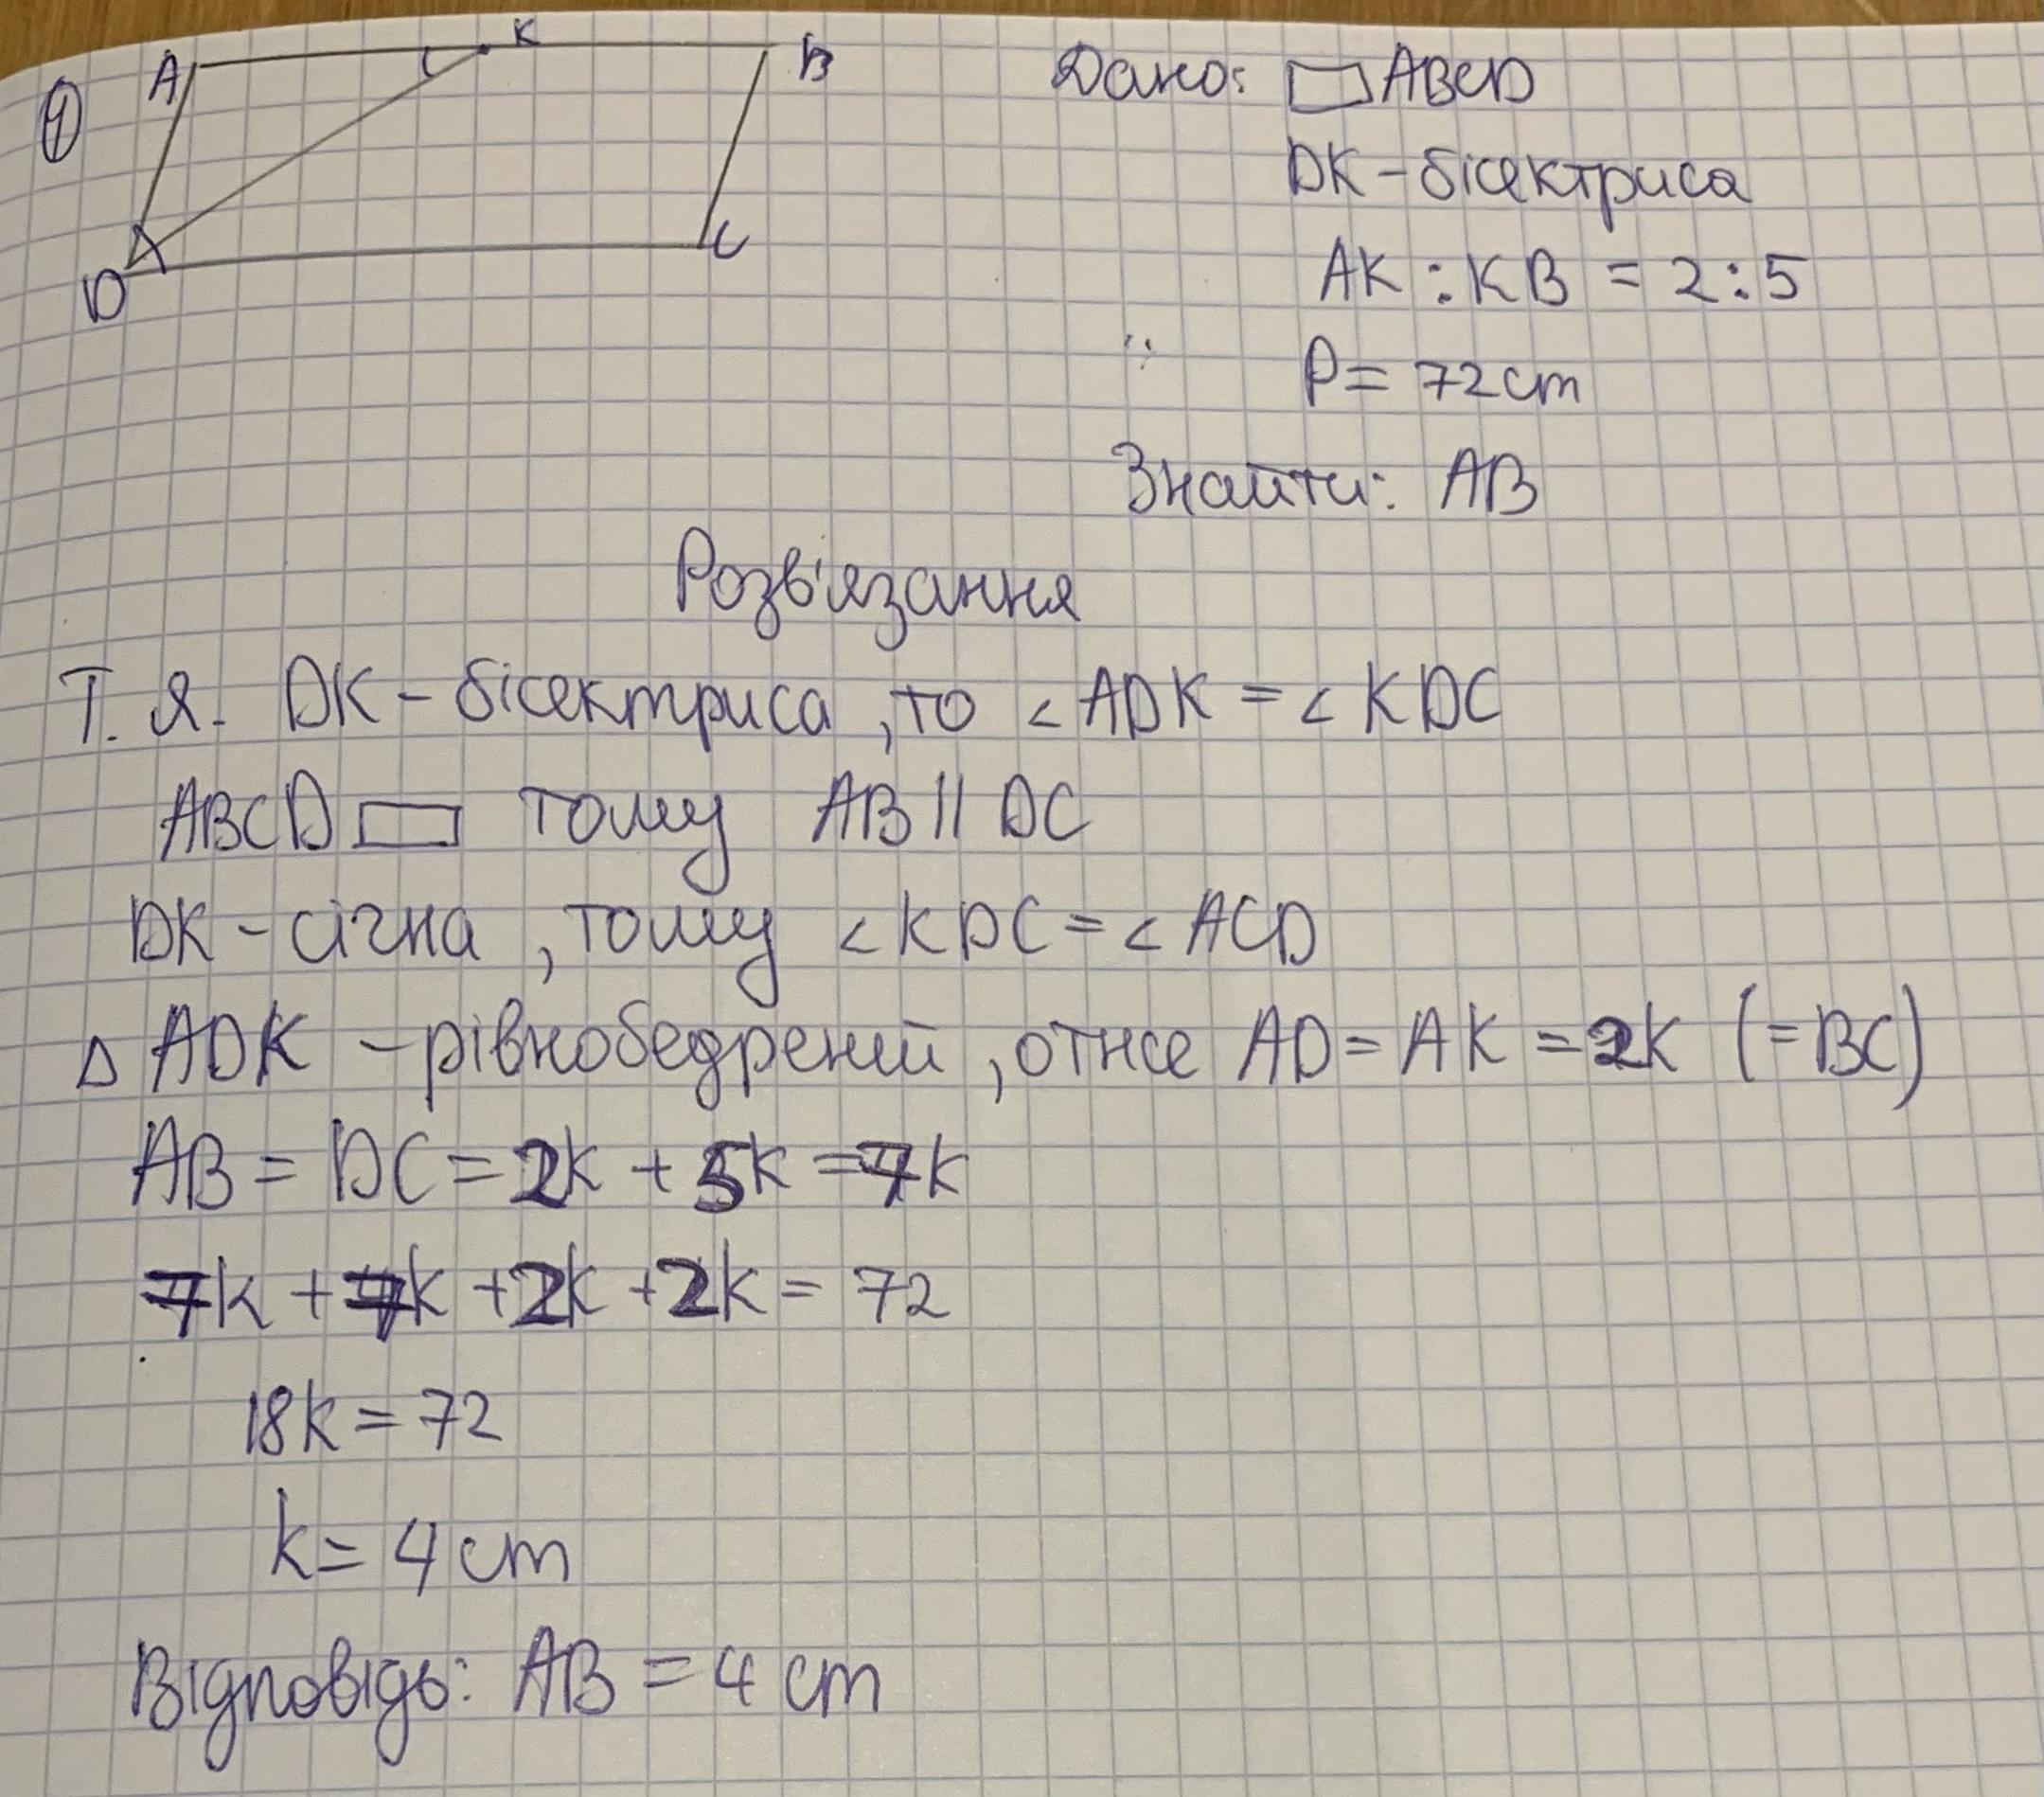 1
A K B
D C
Дано: ▱ ABCD
DK - бісектриса
AK : KB = 2:5
P = 72 cm
Знайти: AB
Розв'язання
Т. я. DK - бісектриса, то ∠ADK = ∠KDC
ABCD ▱ тому AB || DC
DK - січна, тому ∠KDC = ∠ACD
△ ADK - рівнобедрений, отже AD = AK = 2k (=BC)
AB = DC = 2k + 5k = 7k
7k + 7k + 2k + 2k = 72
18k = 72
k = 4 cm
Відповідь: AB = 4 cm